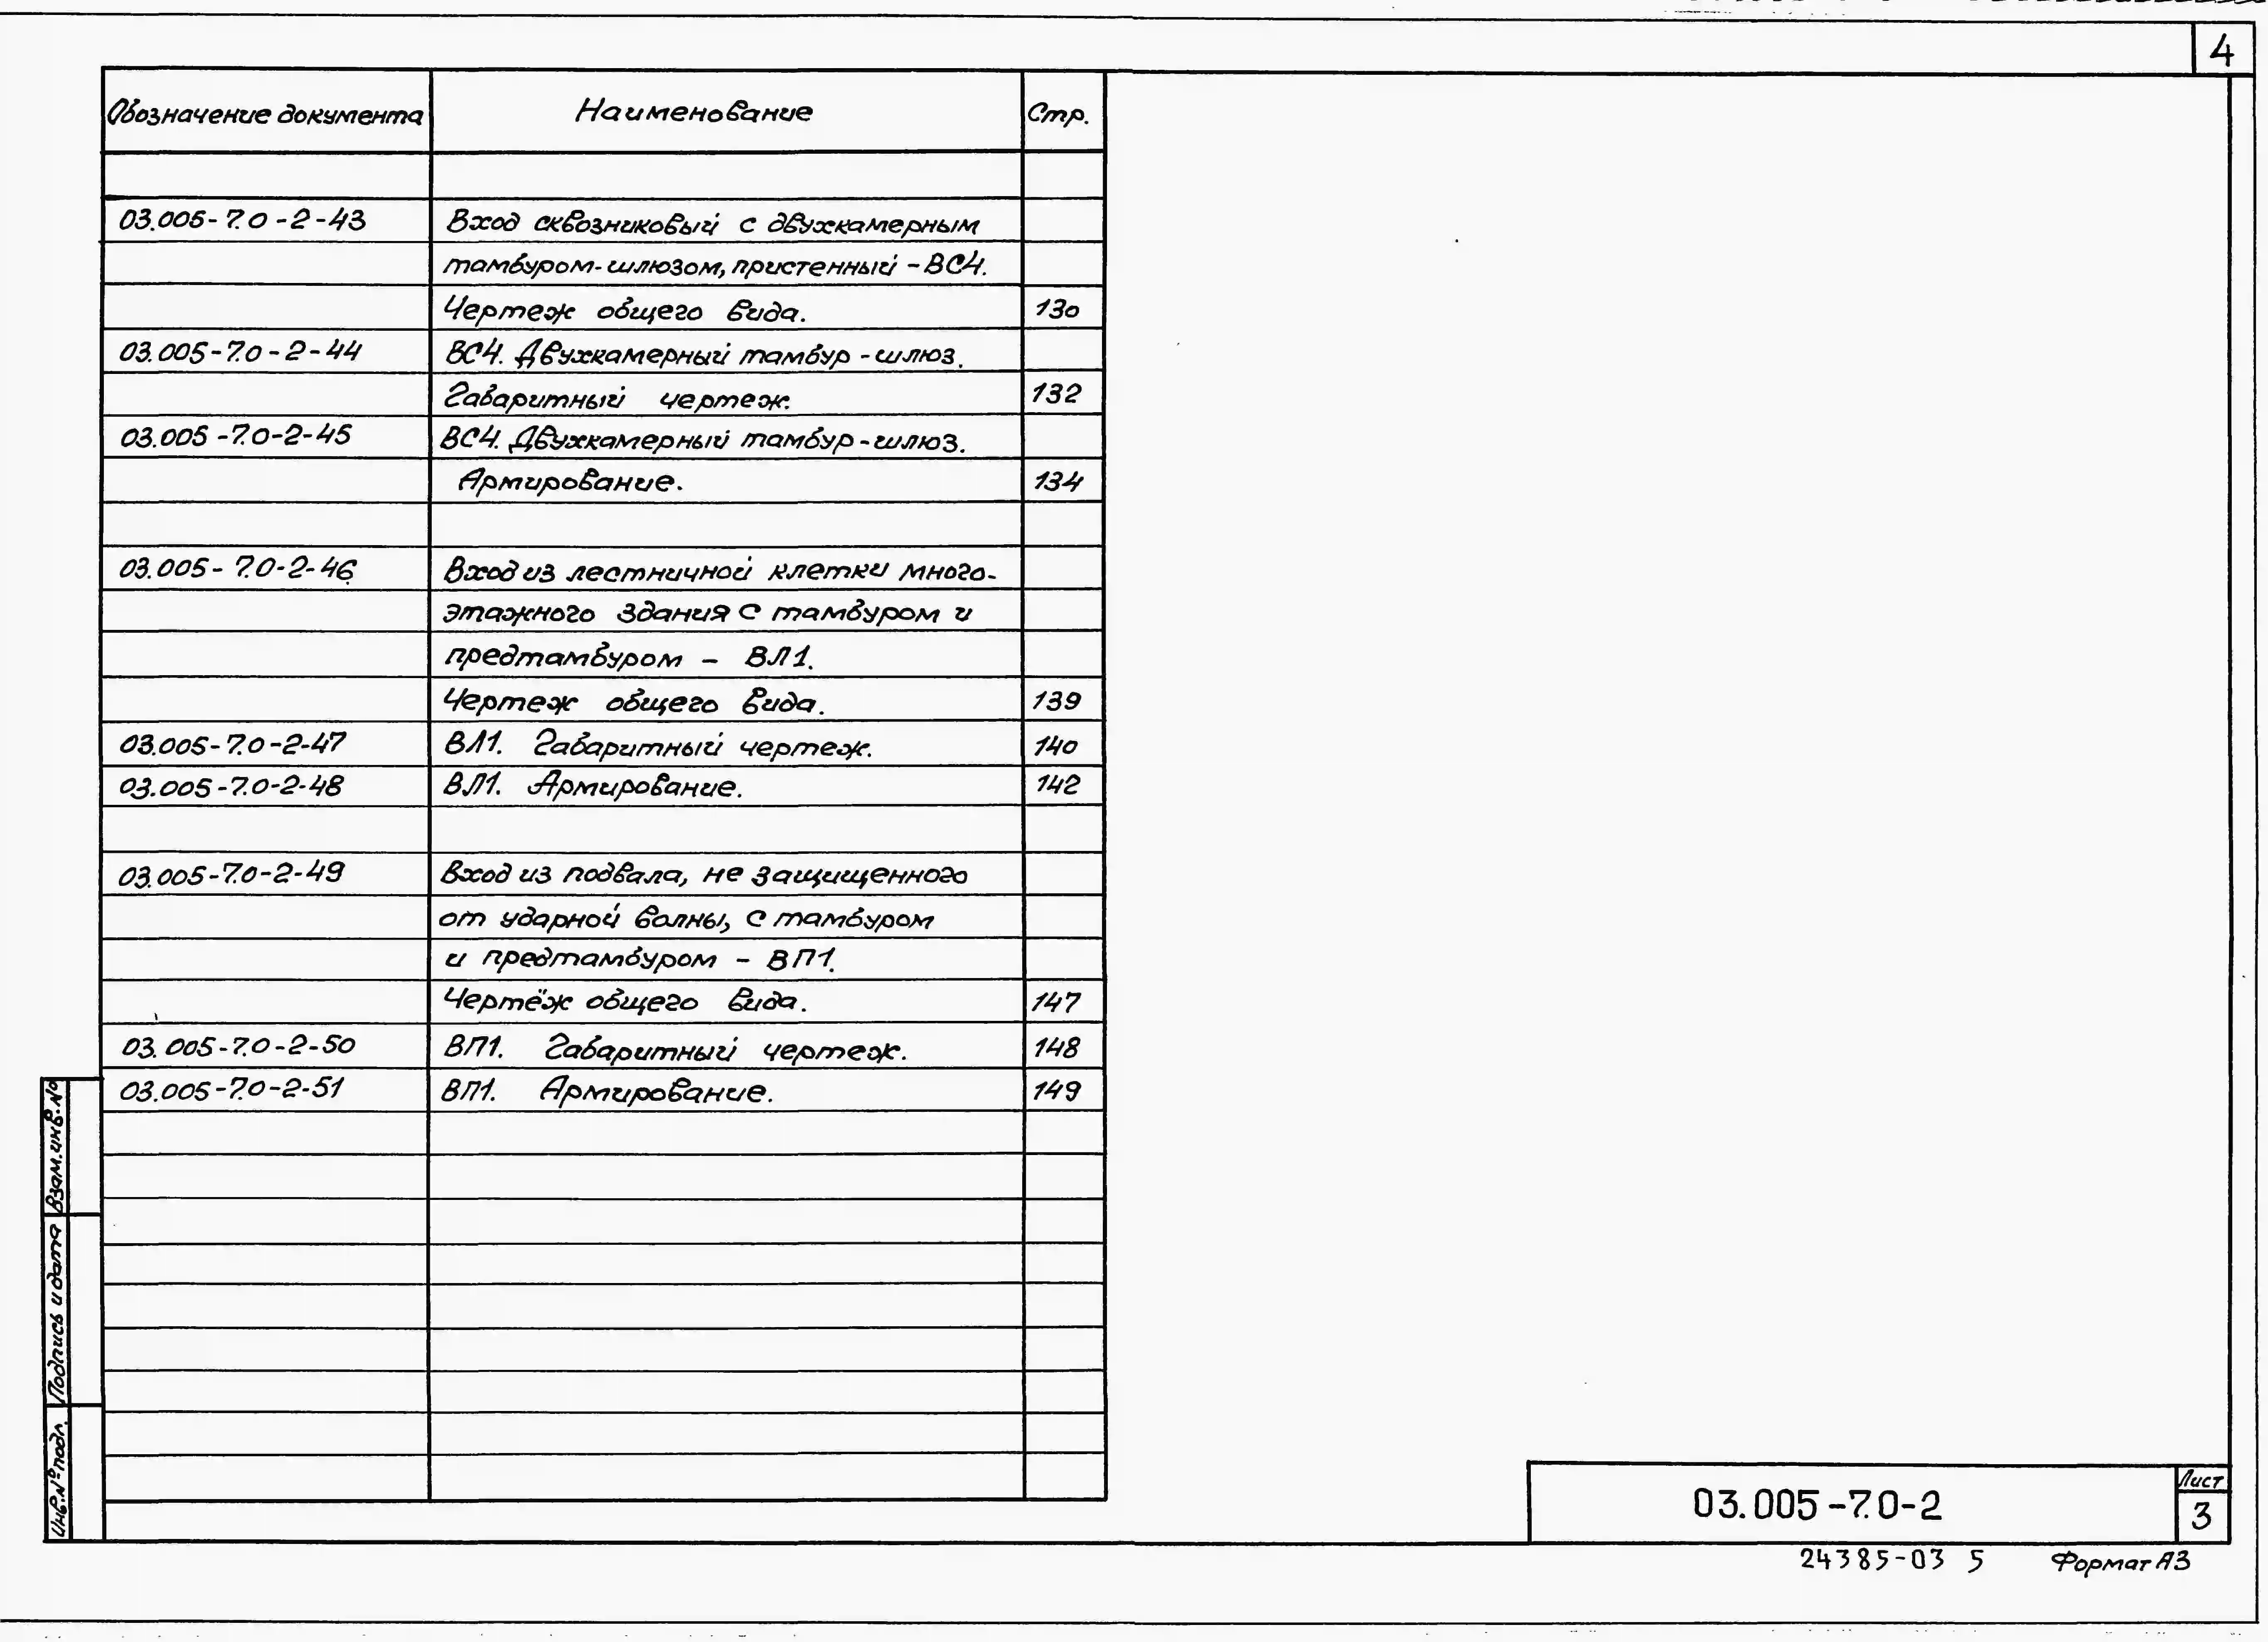 4
Обозначение документа Наименование Стр.
03.005-7.0-2-43 Вход сквозниковый с двухкамерным
тамбуром-шлюзом, пристенный - ВС4.
Чертеж общего вида. 130
03.005-7.0-2-44 ВС4. Двухкамерный тамбур-шлюз.
Габаритный чертеж. 132
03.005-7.0-2-45 ВС4. Двухкамерный тамбур-шлюз.
Армирование. 134
03.005-7.0-2-46 Вход из лестничной клетки много-
этажного здания с тамбуром и
предтамбуром - ВЛ1.
Чертеж общего вида. 139
03.005-7.0-2-47 ВЛ1. Габаритный чертеж. 140
03.005-7.0-2-48 ВЛ1. Армирование. 142
03.005-7.0-2-49 Вход из подвала, не защищенного
от ударной волны, с тамбуром
и предтамбуром - ВП1.
Чертёж общего вида. 147
03.005-7.0-2-50 ВП1. Габаритный чертеж. 148
03.005-7.0-2-51 ВП1. Армирование. 149
Взам.инв.№
Подпись и дата
Инв.№ подл.
03.005-7.0-2
Лист
3
24385-03 5 Формат А3